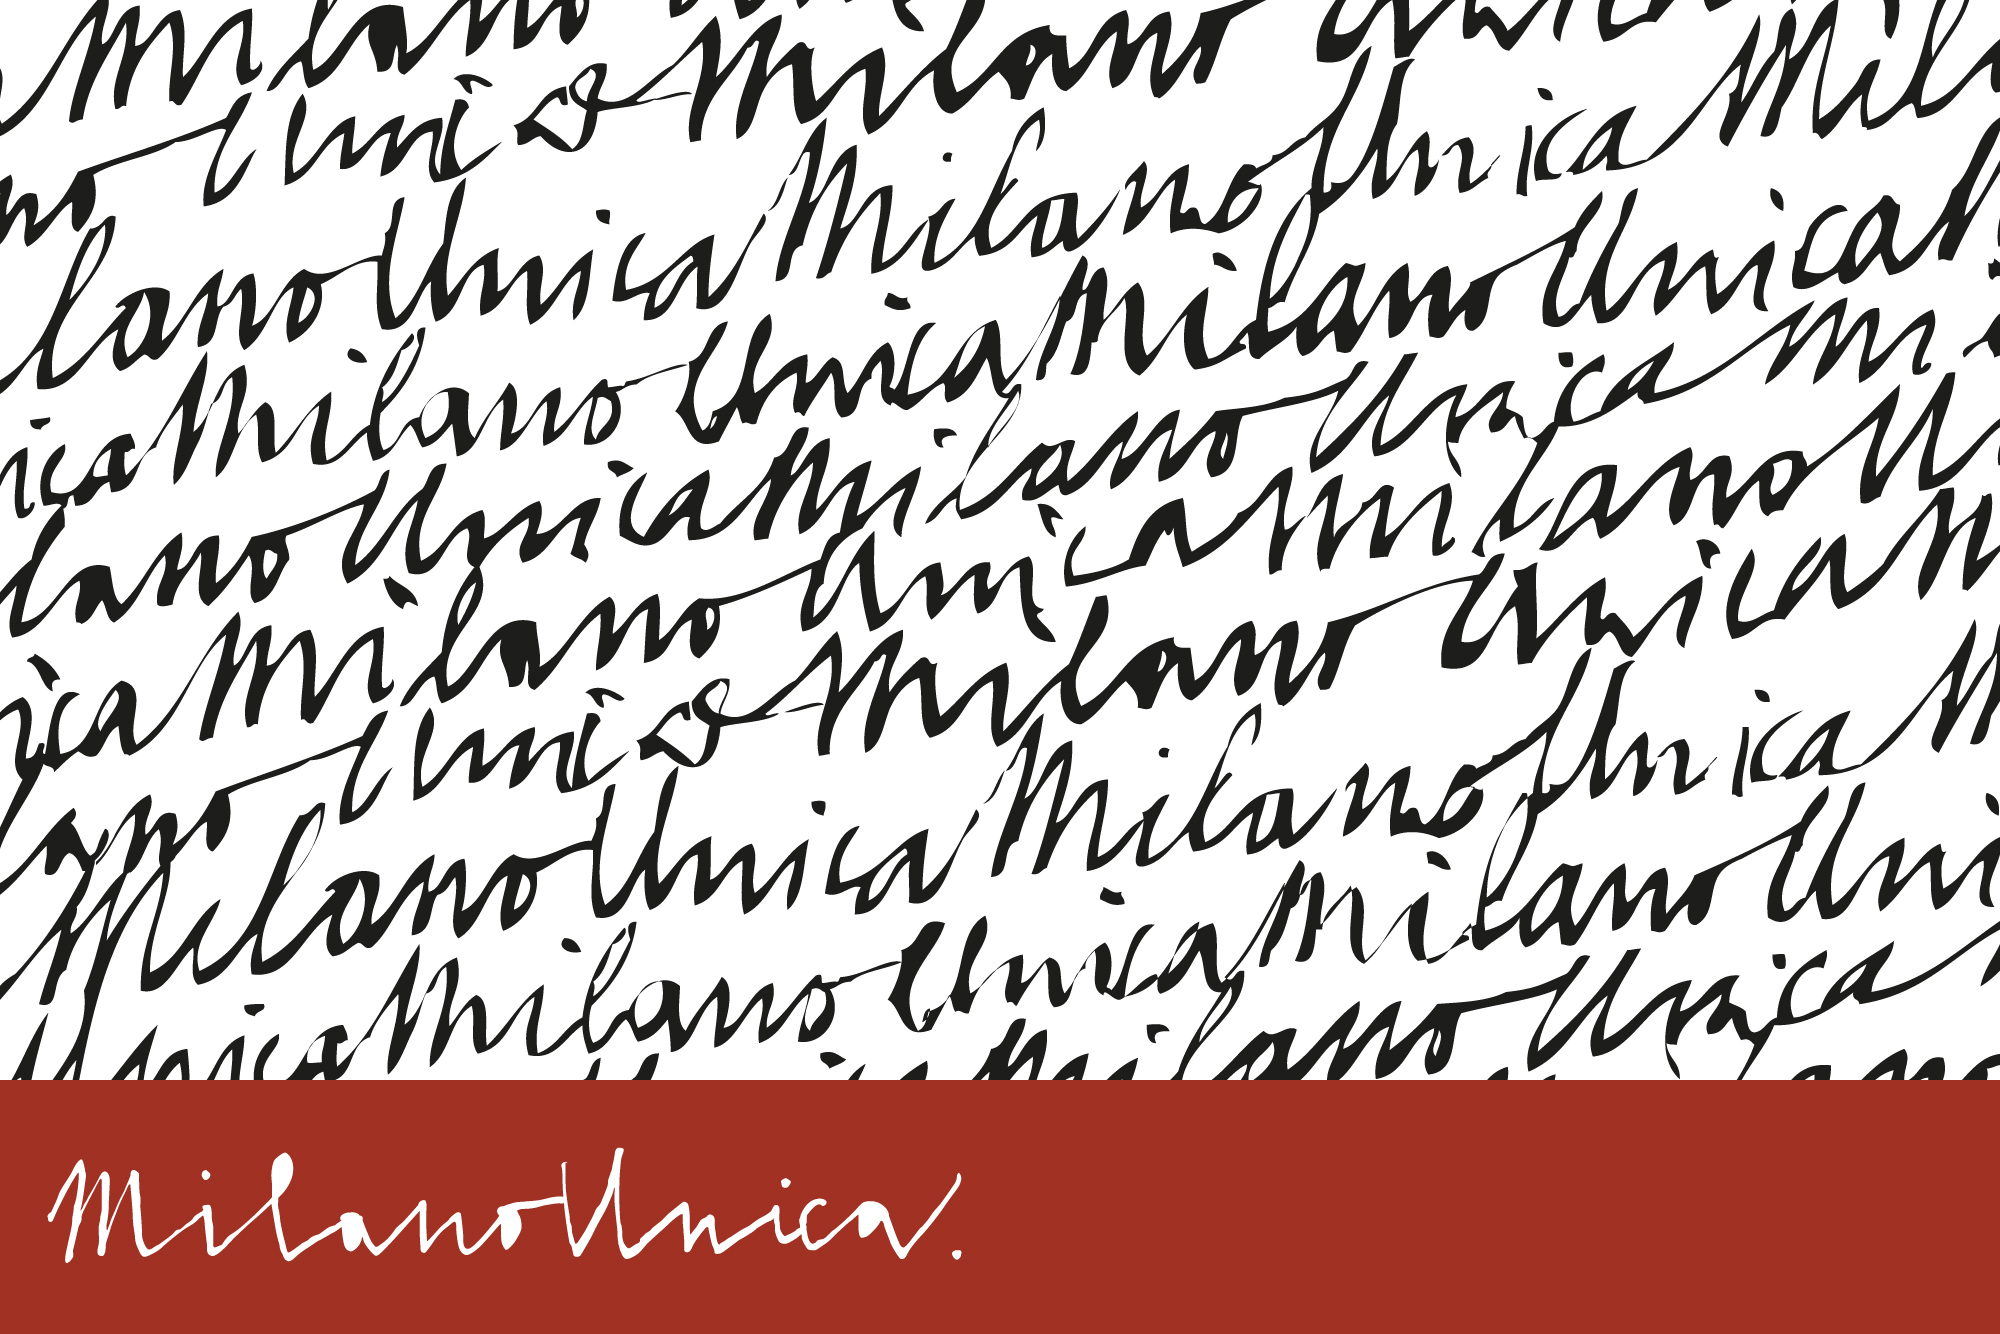 Milano
no Unica Milano Unica
lano Unica Milano Unica Mil
ica Milano Unica Milano Unica M
lano Unica Milano Unica Mi
ica Milano Unica Milano U
lano Unica Milano Unica M
Milano Unica Milano Unica M
Unica Milano Unica Milano Uni
Milano Unica
MilanoUnica.